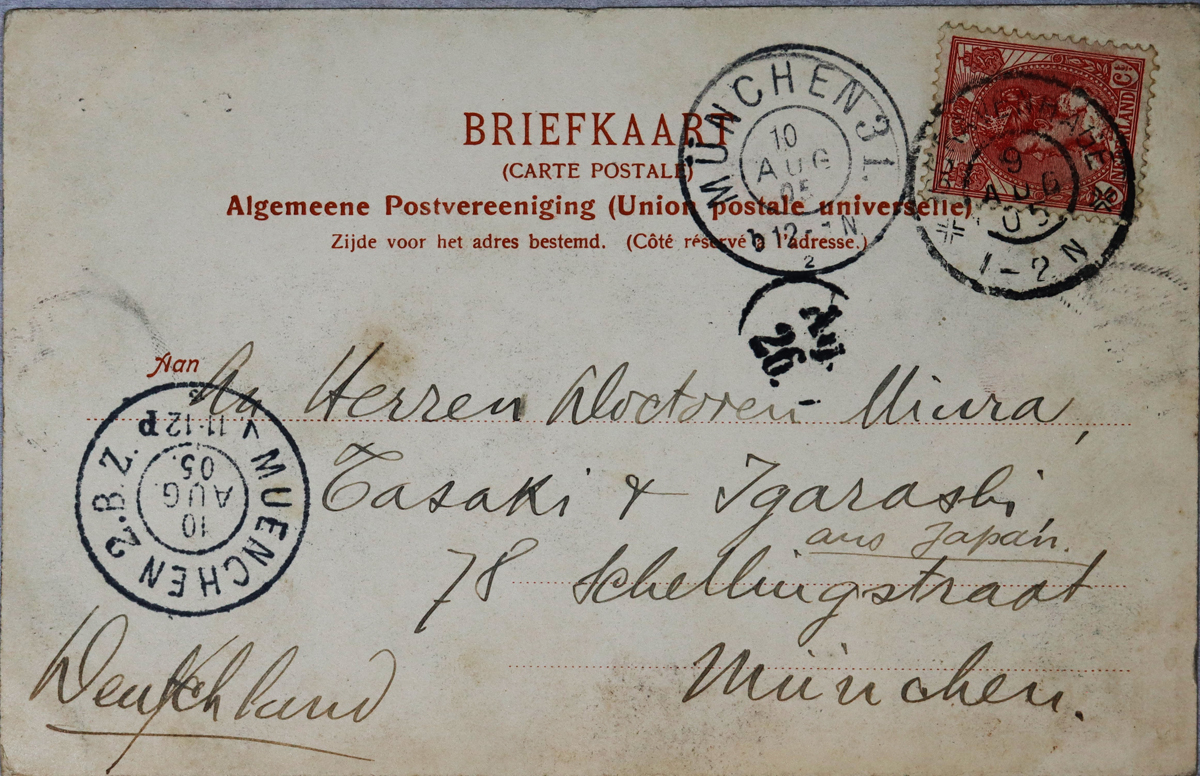 BRIEFKAART
(CARTE POSTALE)
Algemeene Postvereeniging (Union postale universelle)
Zijde voor het adres bestemd. (Côté réservé à l'adresse.)
MÜNCHEN 31.
10
AUG
05
12-1 N
2
5 C
NEDERLAND
9
AUG
05
1-2 N
26.
Aan
An Herren Doctoren Miura,
Tasaki & Igarashi,
aus Japan.
78 Schellingstraat
München.
Deutschland
MUENCHEN 2.B.Z.
10
AUG.
05.
V. 11-12